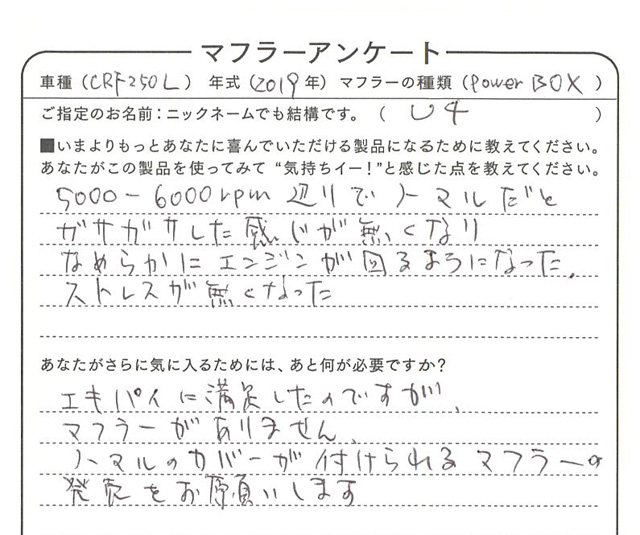 マフラーアンケート
車種（CRF250L） 年式（2019年）マフラーの種類（Power BOX）
ご指定のお名前：ニックネームでも結構です。（ U4 ）
■いまよりもっとあなたに喜んでいただける製品になるために教えてください。
あなたがこの製品を使ってみて“気持ちイー！”と感じた点を教えてください。
5000－6000rpm 辺りでノーマルだと
ガサガサした感じが無くなり
なめらかにエンジンが回るようになった。
ストレスが無くなった
あなたがさらに気に入るためには、あと何が必要ですか？
エキパイに満足したのですが、
マフラーがありません、
ノーマルのカバーが付けられるマフラーの
発売をお願いします